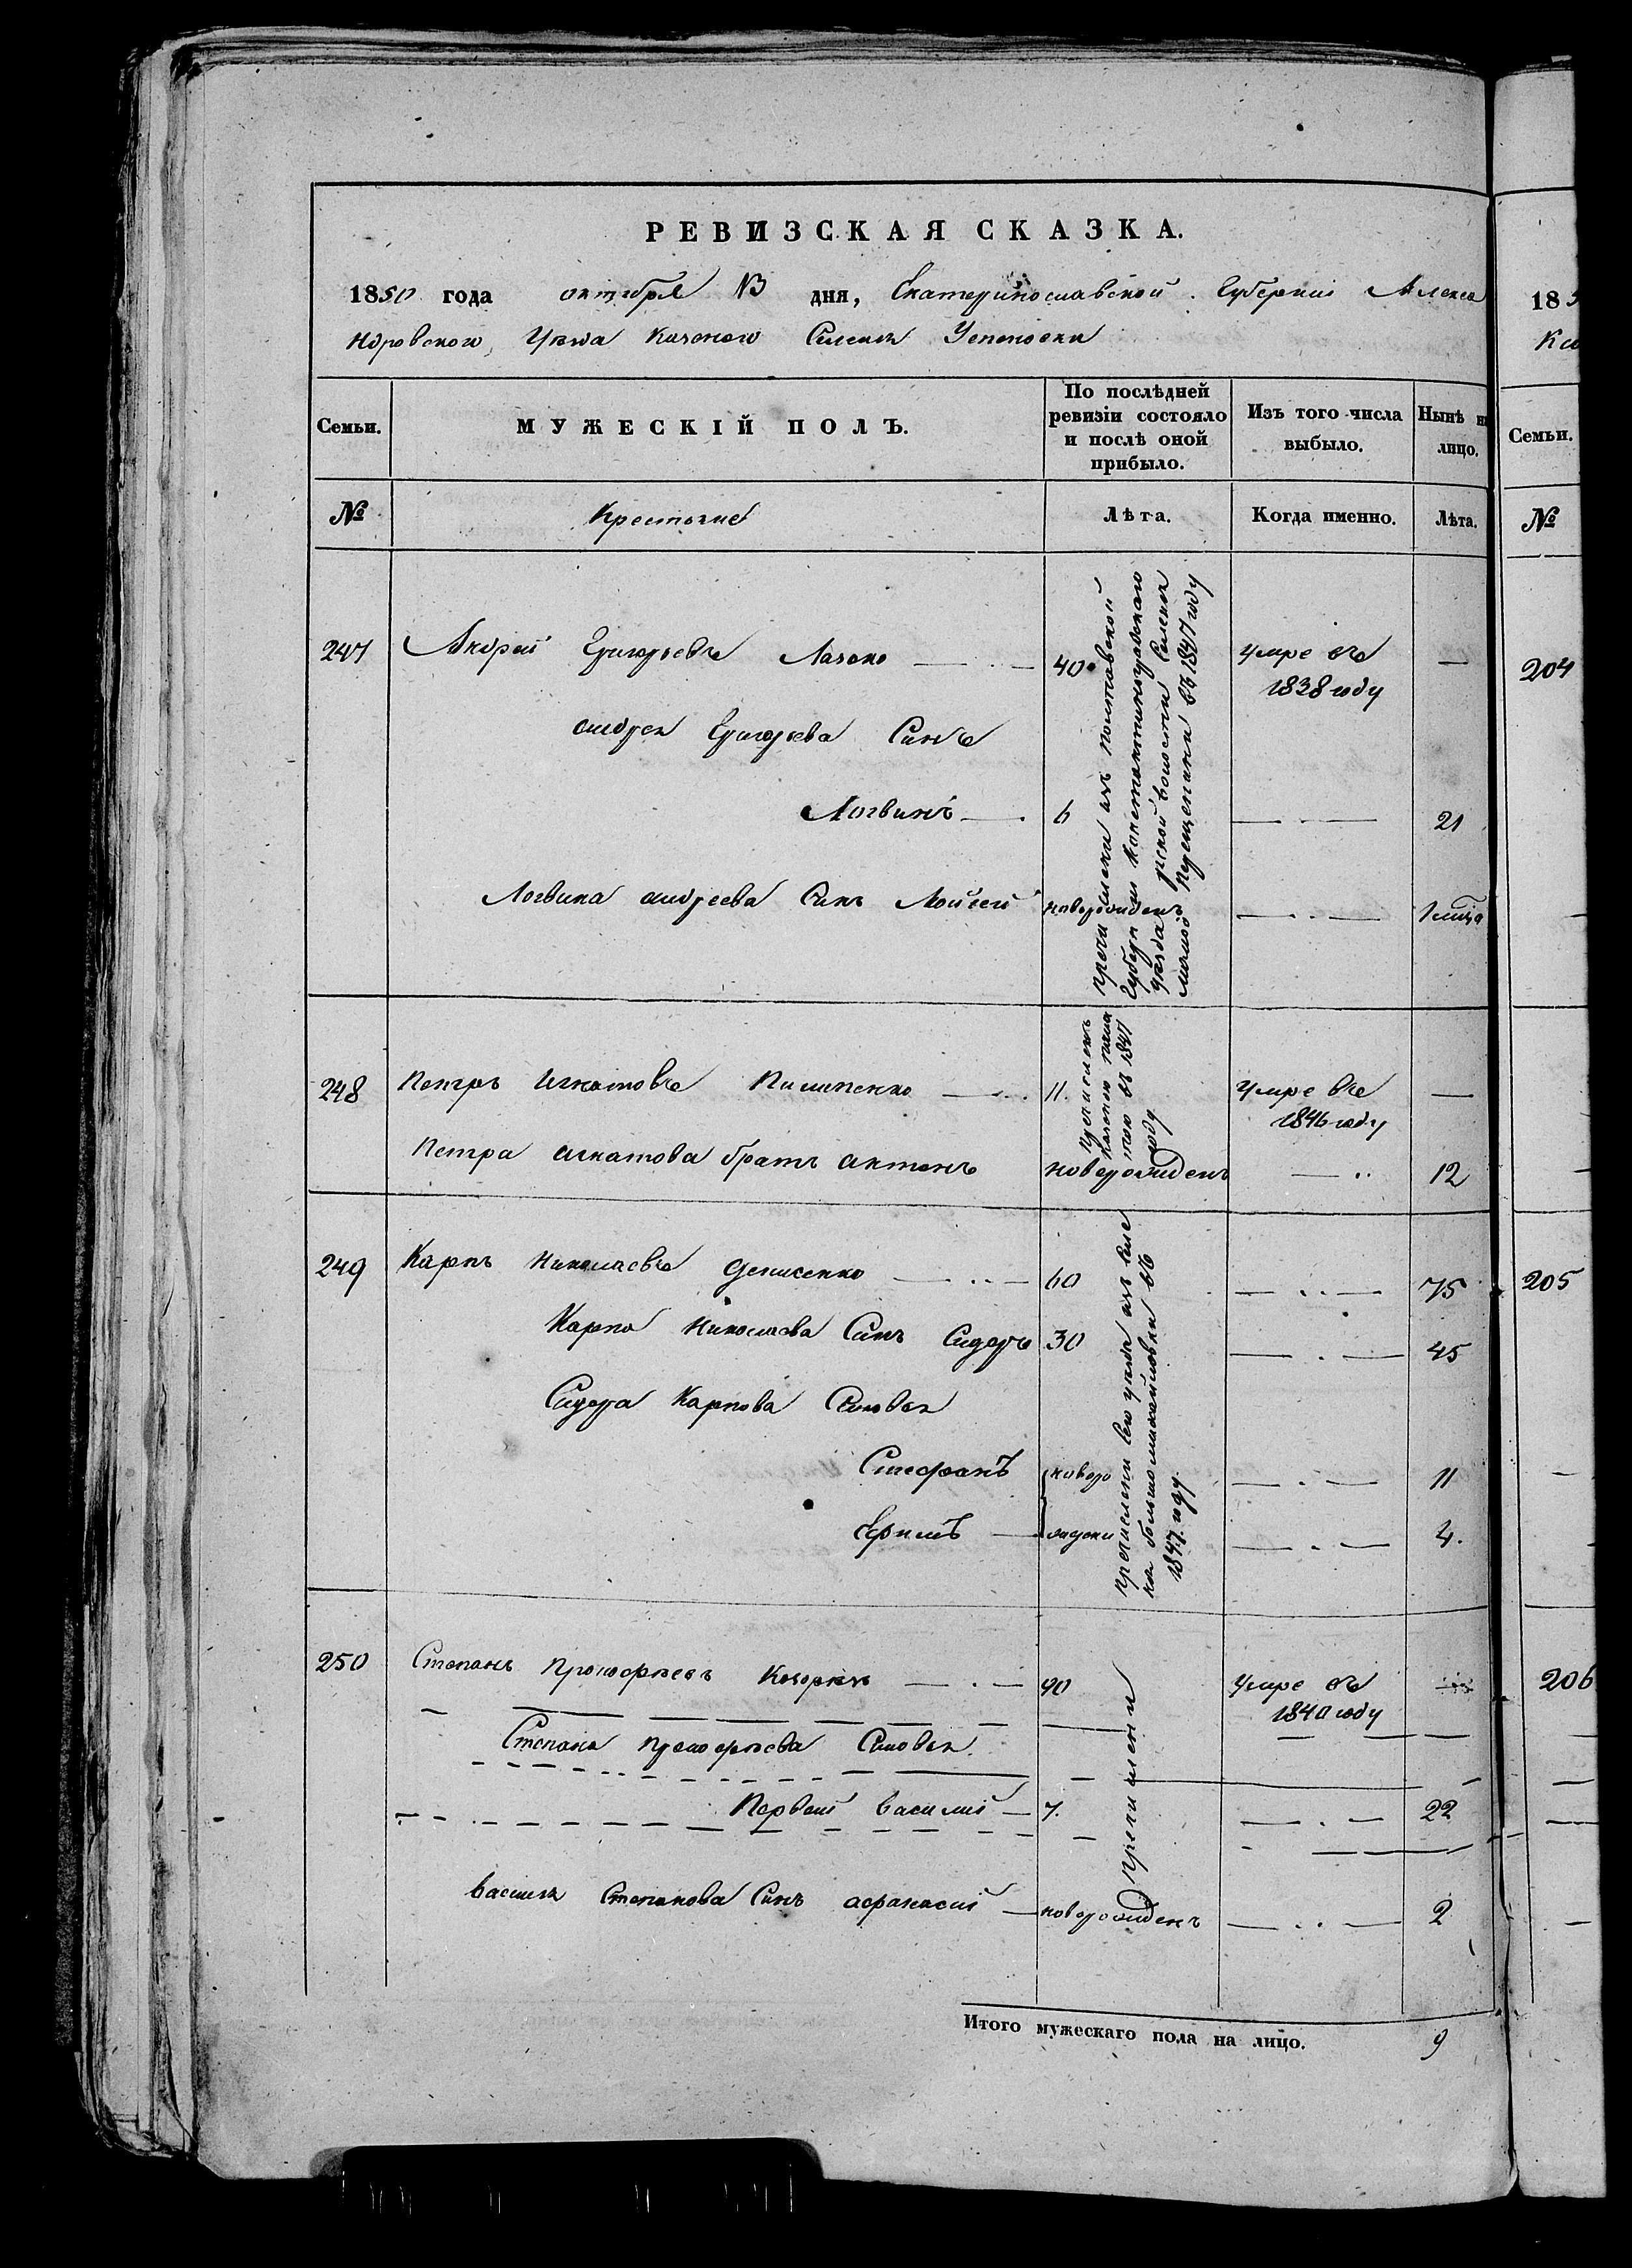 РЕВИЗСКАЯ СКАЗКА.
1850 года октября 13 дня, Екатеринославской Губернiи Алекса
ндровского Уезда Казеного Селенiя Успеновки
Семьи.
МУЖЕСКІЙ ПОЛЪ.
По послѣдней
ревизіи состояло
и послѣ оной
прибыло.
Изъ того числа
выбыло.
Нынѣ н
лицо.
№
Крестьяне
Лѣта.
Когда именно.
Лѣта.
247
Андрей Григорьевъ
40
умре въ
1838 году
—
андрея Григорьева Синъ
Логвинъ
6
21
Логвина андреева Синъ Мойсей
новорожденъ
причислени изъ полтавской
Губернiи константиноградскаго
уезда
волости Селенiя
въ 1847 году
248
Петръ Игнатовъ Пилипенко
11.
умре въ
1846 году
—
Петра игнатова братъ антонъ
новорожденъ
12
причисленъ
казеною пала
тою въ 1847
году
249
Карпъ Николаевъ денисенко
60
75
Карпа Николаева Синъ Сидоръ
30
45
Сидора Карпова Синовья
Стефанъ
новоро
11
Ефимъ
ждени
4.
причислени сего уезда изъ Селе
нiя большомихайловки въ
1847. году.
250
Степанъ Прокофьевъ
40
умре въ
1840 году
Степана прокофьева Синовья
Первый василий
7.
22
василия Степанова Синъ афанасий
новорожденъ
2
причислени
Итого мужескаго пола на лицо.
9
185
Семьи.
№
204
205
206